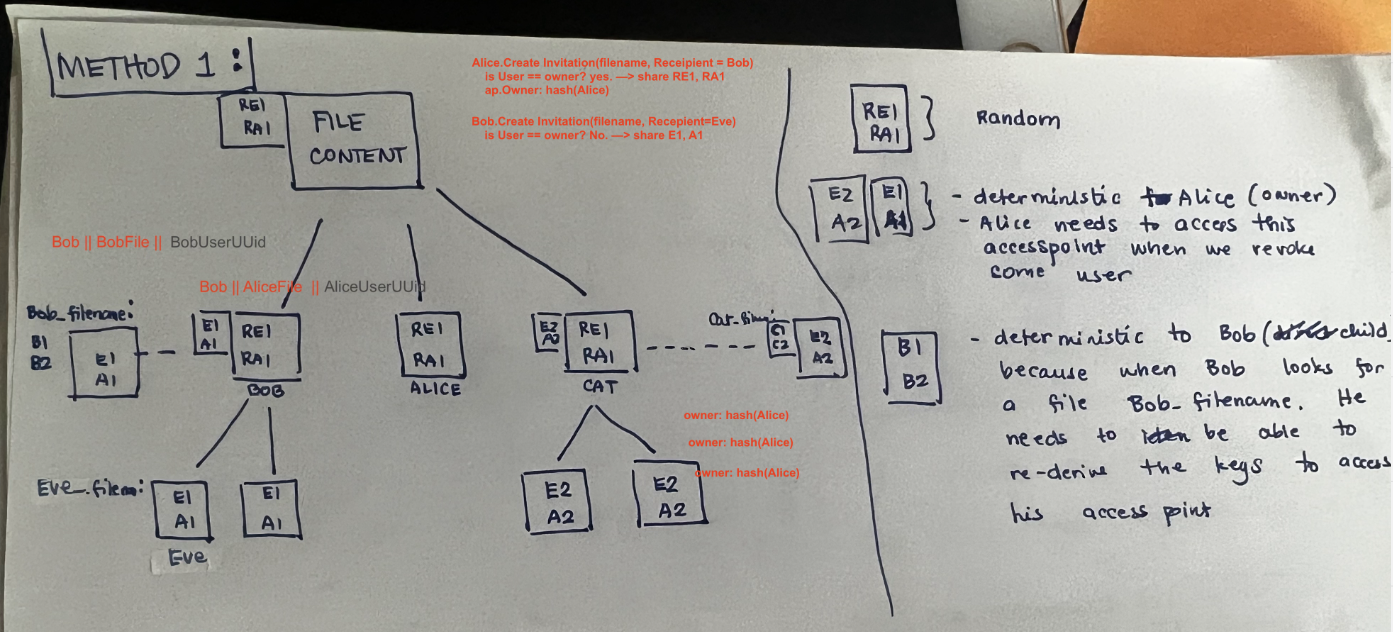 METHOD 1 :
RE1
RA1
FILE
CONTENT
Alice.Create Invitation(filename, Receipient = Bob)
is User == owner? yes. —> share RE1, RA1
ap.Owner: hash(Alice)
Bob.Create Invitation(filename, Recepient=Eve)
is User == owner? No. —> share E1, A1
Bob || BobFile || BobUserUUid
Bob || AliceFile || AliceUserUUid
Bob_filename:
B1
B2
E1
A1
E1
A1
RE1
RA1
BOB
RE1
RA1
ALICE
E2
A2
RE1
RA1
CAT
C1
C2
E2
A2
owner: hash(Alice)
owner: hash(Alice)
owner: hash(Alice)
E1
A1
Eve
E1
A1
E2
A2
E2
A2
RE1
RA1
Random
E2
A2
E1
A1
- deterministic to Alice (owner)
- Alice needs to access this
accesspoint when we revoke
some user
B1
B2
- deterministic to Bob (child
because when Bob looks for
a file Bob_filename. He
needs to be able to
re-derive the keys to access
his access point